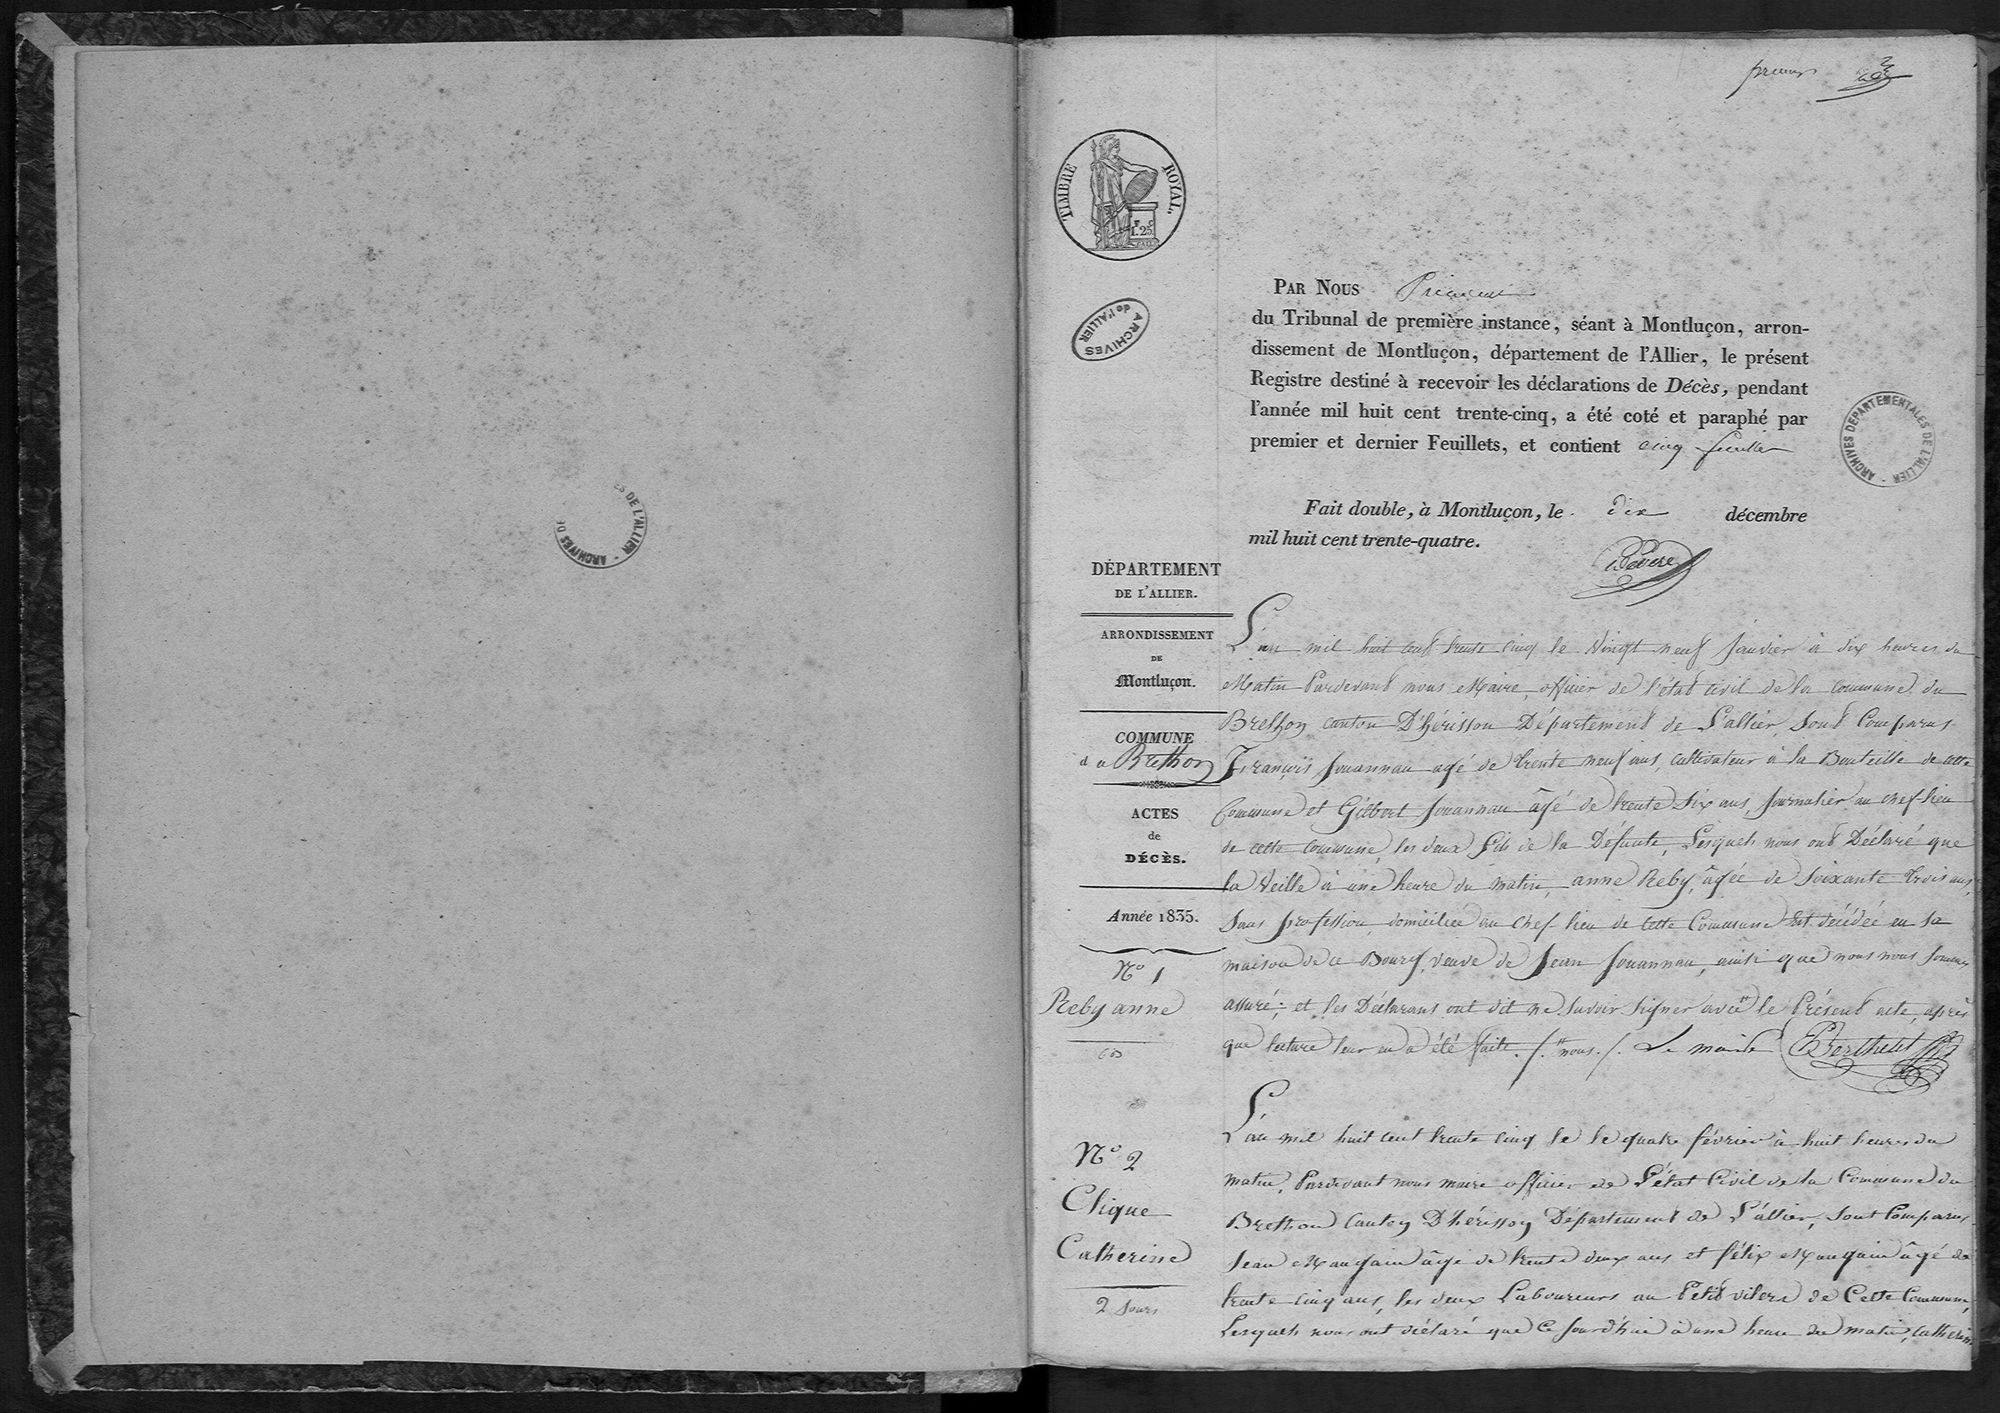 premier
TIMBRE ROYAL.
1. 25
ARCHIVES de l'ALLIER
PAR NOUS Président
du Tribunal de première instance, séant à Montluçon, arron-
dissement de Montluçon, département de l'Allier, le présent
Registre destiné à recevoir les déclarations de Décès, pendant
l'année mil huit cent trente-cinq, a été coté et paraphé par
premier et dernier Feuillets, et contient cinq feuillets
ARCHIVES DÉPARTEMENTALES DE L'ALLIER -
ES DE L'ALLIER - ARCHIVES DE
Fait double, à Montluçon, le dix décembre
mil huit cent trente-quatre.
DÉPARTEMENT
DE L'ALLIER.
ARRONDISSEMENT
DE
Montluçon.
COMMUNE
du Brethon
ACTES
de
DÉCÈS.
Année 1835.
N° 1
Reby anne
L'an mil huit cent trente cinq le Vingt neuf Janvier à dix heures du
Matin Pardevant nous Maire officier de l'état civil de la commune du
Brethon canton D'hérisson Département de L'allier, sont Comparus
François Jouannau agé de trente neuf ans, cultivateur à la Bouteille de cette
Commune et Gilbert Jouannau âgé de trente Six ans, Journalier au chef-lieu
de cette commune, les deux fils de la Défunte, Lesquels nous ont Déclaré que
la Veille à une heure du matin, anne Reby, âgée de Soixante trois ans,
Sans profession, domiciliée au Chef lieu de cette Commune Est décédée en sa
maison de ce Bourg, veuve de Jean Jouannau, ainsi que nous nous sommes
assuré; et les Déclarans ont dit ne Savoir Signer avec le Présent acte, après
que lecture leur en a été faite. /. nous. /. Le maire Berthelet
N° 2
Clique
Catherine
2 Jours
L'an mil huit cent trente cinq le le quatre février à huit heures du
matin, Pardevant nous maire officier de L'état Civil de la Commune du
Brethon Canton D'hérisson Département de L'allier, sont Comparus
Jean Maugain âgé de trente deux ans et félix Maugain âgé de
trente cinq ans, les deux Laboureurs au Petit vilers de Cette Commune,
Lesquels nous ont déclaré que Ce Jourd'hui à une heure du matin, Catherine